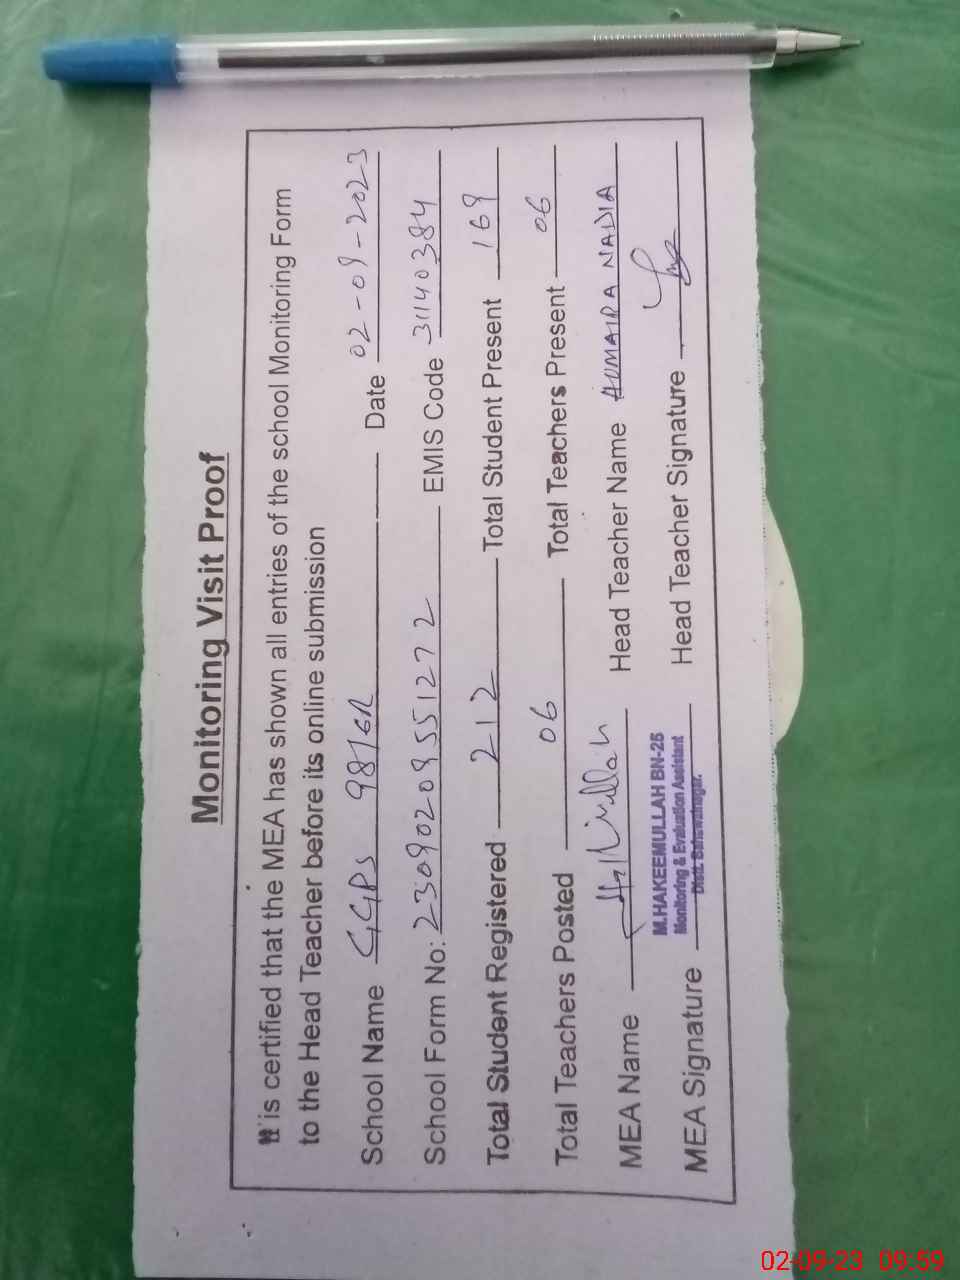 Monitoring Visit Proof
It is certified that the MEA has shown all entries of the school Monitoring Form
to the Head Teacher before its online submission
School Name GGPS 98/6R Date 02-09-2023
School Form No: 23090209551272 EMIS Code 31140384
Total Student Registered 212 Total Student Present 169
Total Teachers Posted 06 Total Teachers Present 06
MEA Name Head Teacher Name HUMAIRA NADIA
M.HAKEEMULLAH BN-25
Monitoring & Evaluation Assistant
Distt. Bahawalnagar.
MEA Signature Head Teacher Signature
02-09-23 09:59